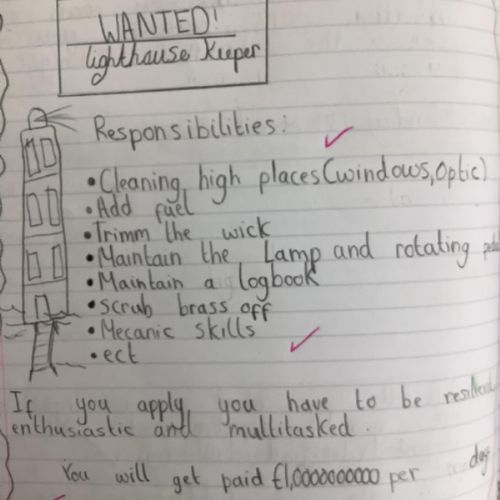 WANTED!
lighthouse Keeper
Responsibilities:
• Cleaning high places (windows, Optic)
• Add fuel
• Trimm the wick
• Maintain the Lamp and rotating
• Maintain a logbook
• scrub brass off
• Mecanic skills
• ect
If you apply, you have to be
enthusiastic and multitasked.
You will get paid £1,0000000000 per day